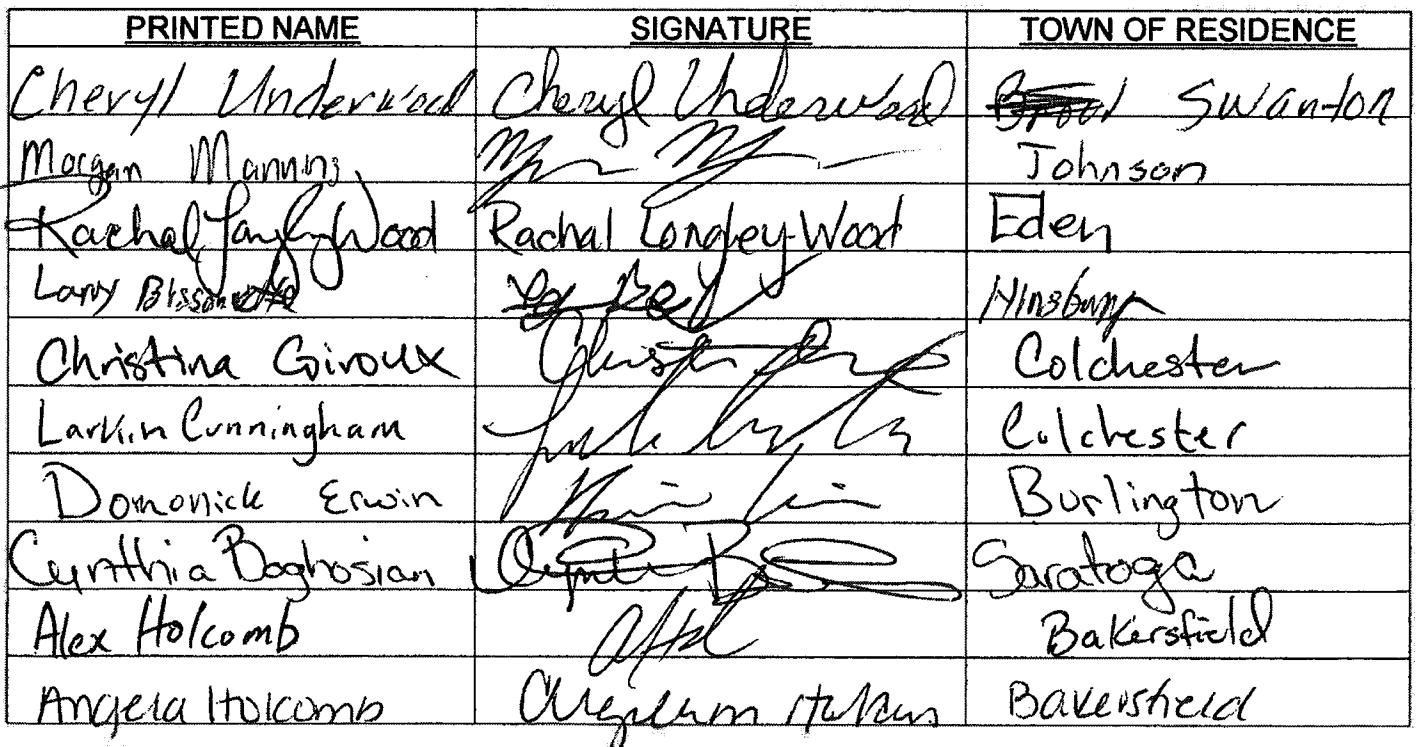 PRINTED NAME SIGNATURE TOWN OF RESIDENCE
Cheryl Underwood Cheryl Underwood Swanton
Morgan Manning Johnson
Rachal Longley-Wood Rachal Longley-Wood Eden
Larry Bissonette
Christina Giroux Colchester
Larkin Cunningham Colchester
Domonick Erwin Burlington
Cynthia Boghosian Saratoga
Alex Holcomb Bakersfield
Angela Holcomb Bakersfield